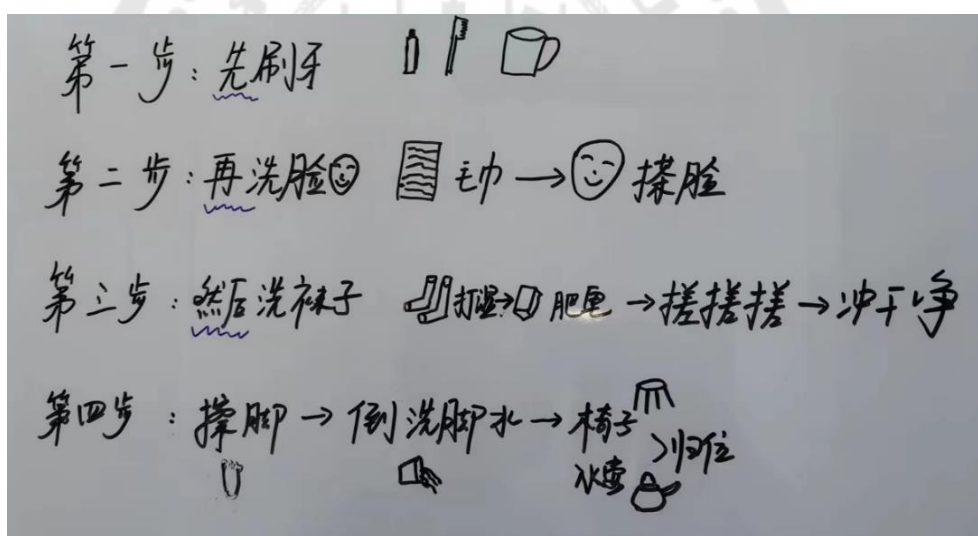 第一步：先刷牙
第二步：再洗脸 毛巾→擦脸
第三步：然后洗袜子 打湿→肥皂→搓搓搓→冲干净
第四步：擦脚→倒洗脚水→椅子
水壶 >归位